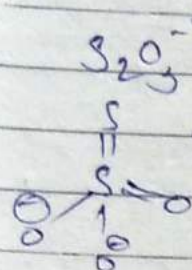 S₂O₃⁻
S
||
S = O
⊖ O
O ⊖